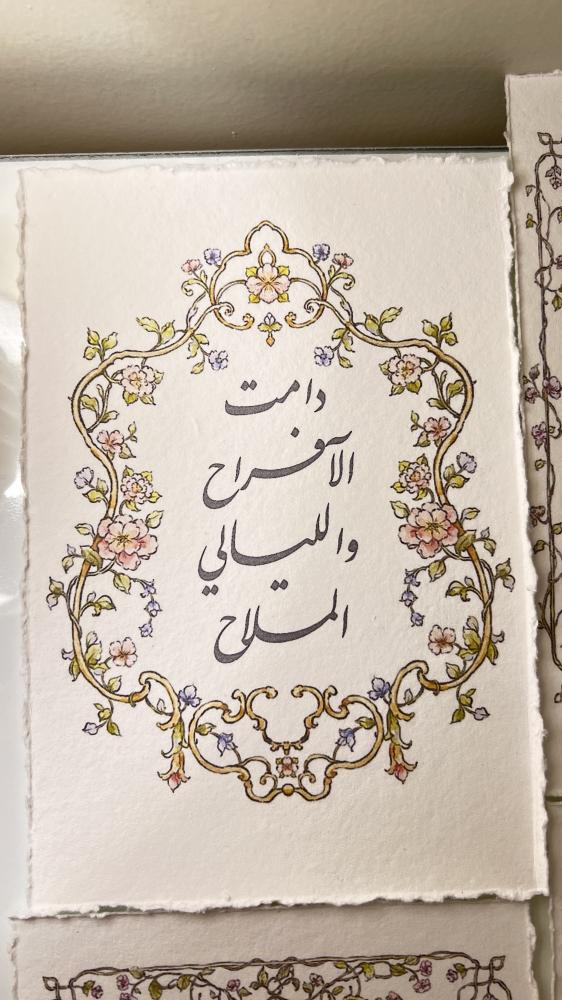 دامت
الأفراح
والليالي
الملاح